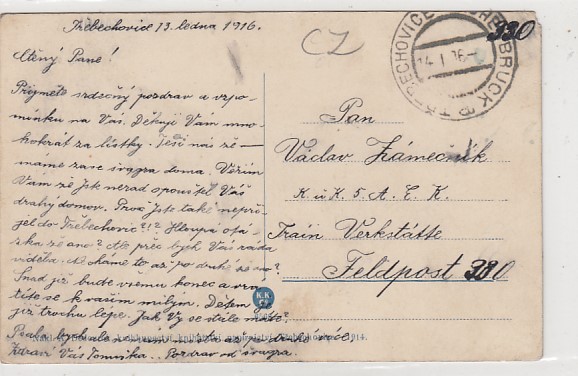 Třebechovice 13. ledna 1916.
Ctěný Pane!
Přijměte srdečný pozdrav a vzpo-
mínku na Vás. Děkuji Vám mno-
hokrát za lístky. Těší nás že
máme zase švagra doma. Věřím
Vám že jste nerad opouštěl Váš
drahý domov. Proč jste také nepři-
jel do Třebechovic?!? Hloupá otá-
zka že ano? Ale přec bych Vás ráda
viděla. Ale cháme to až po druhé že ano?
Snad již bude všemu konec a vrá-
títe se k vašim milým. Dětem je
již trochu lépe. Jak Vy se stále máte?
Psala bych ale
Zdraví Vás Tonička.. Pozdrav od švagra.
CZ
TŘEBECHOVICE
HOHENBRUCK
14. I. 16
330
Pan
Václav Zámečník
K. u. K. 5. A. E. K.
Train Verkstätte
Feldpost 330
K.K.
1914.